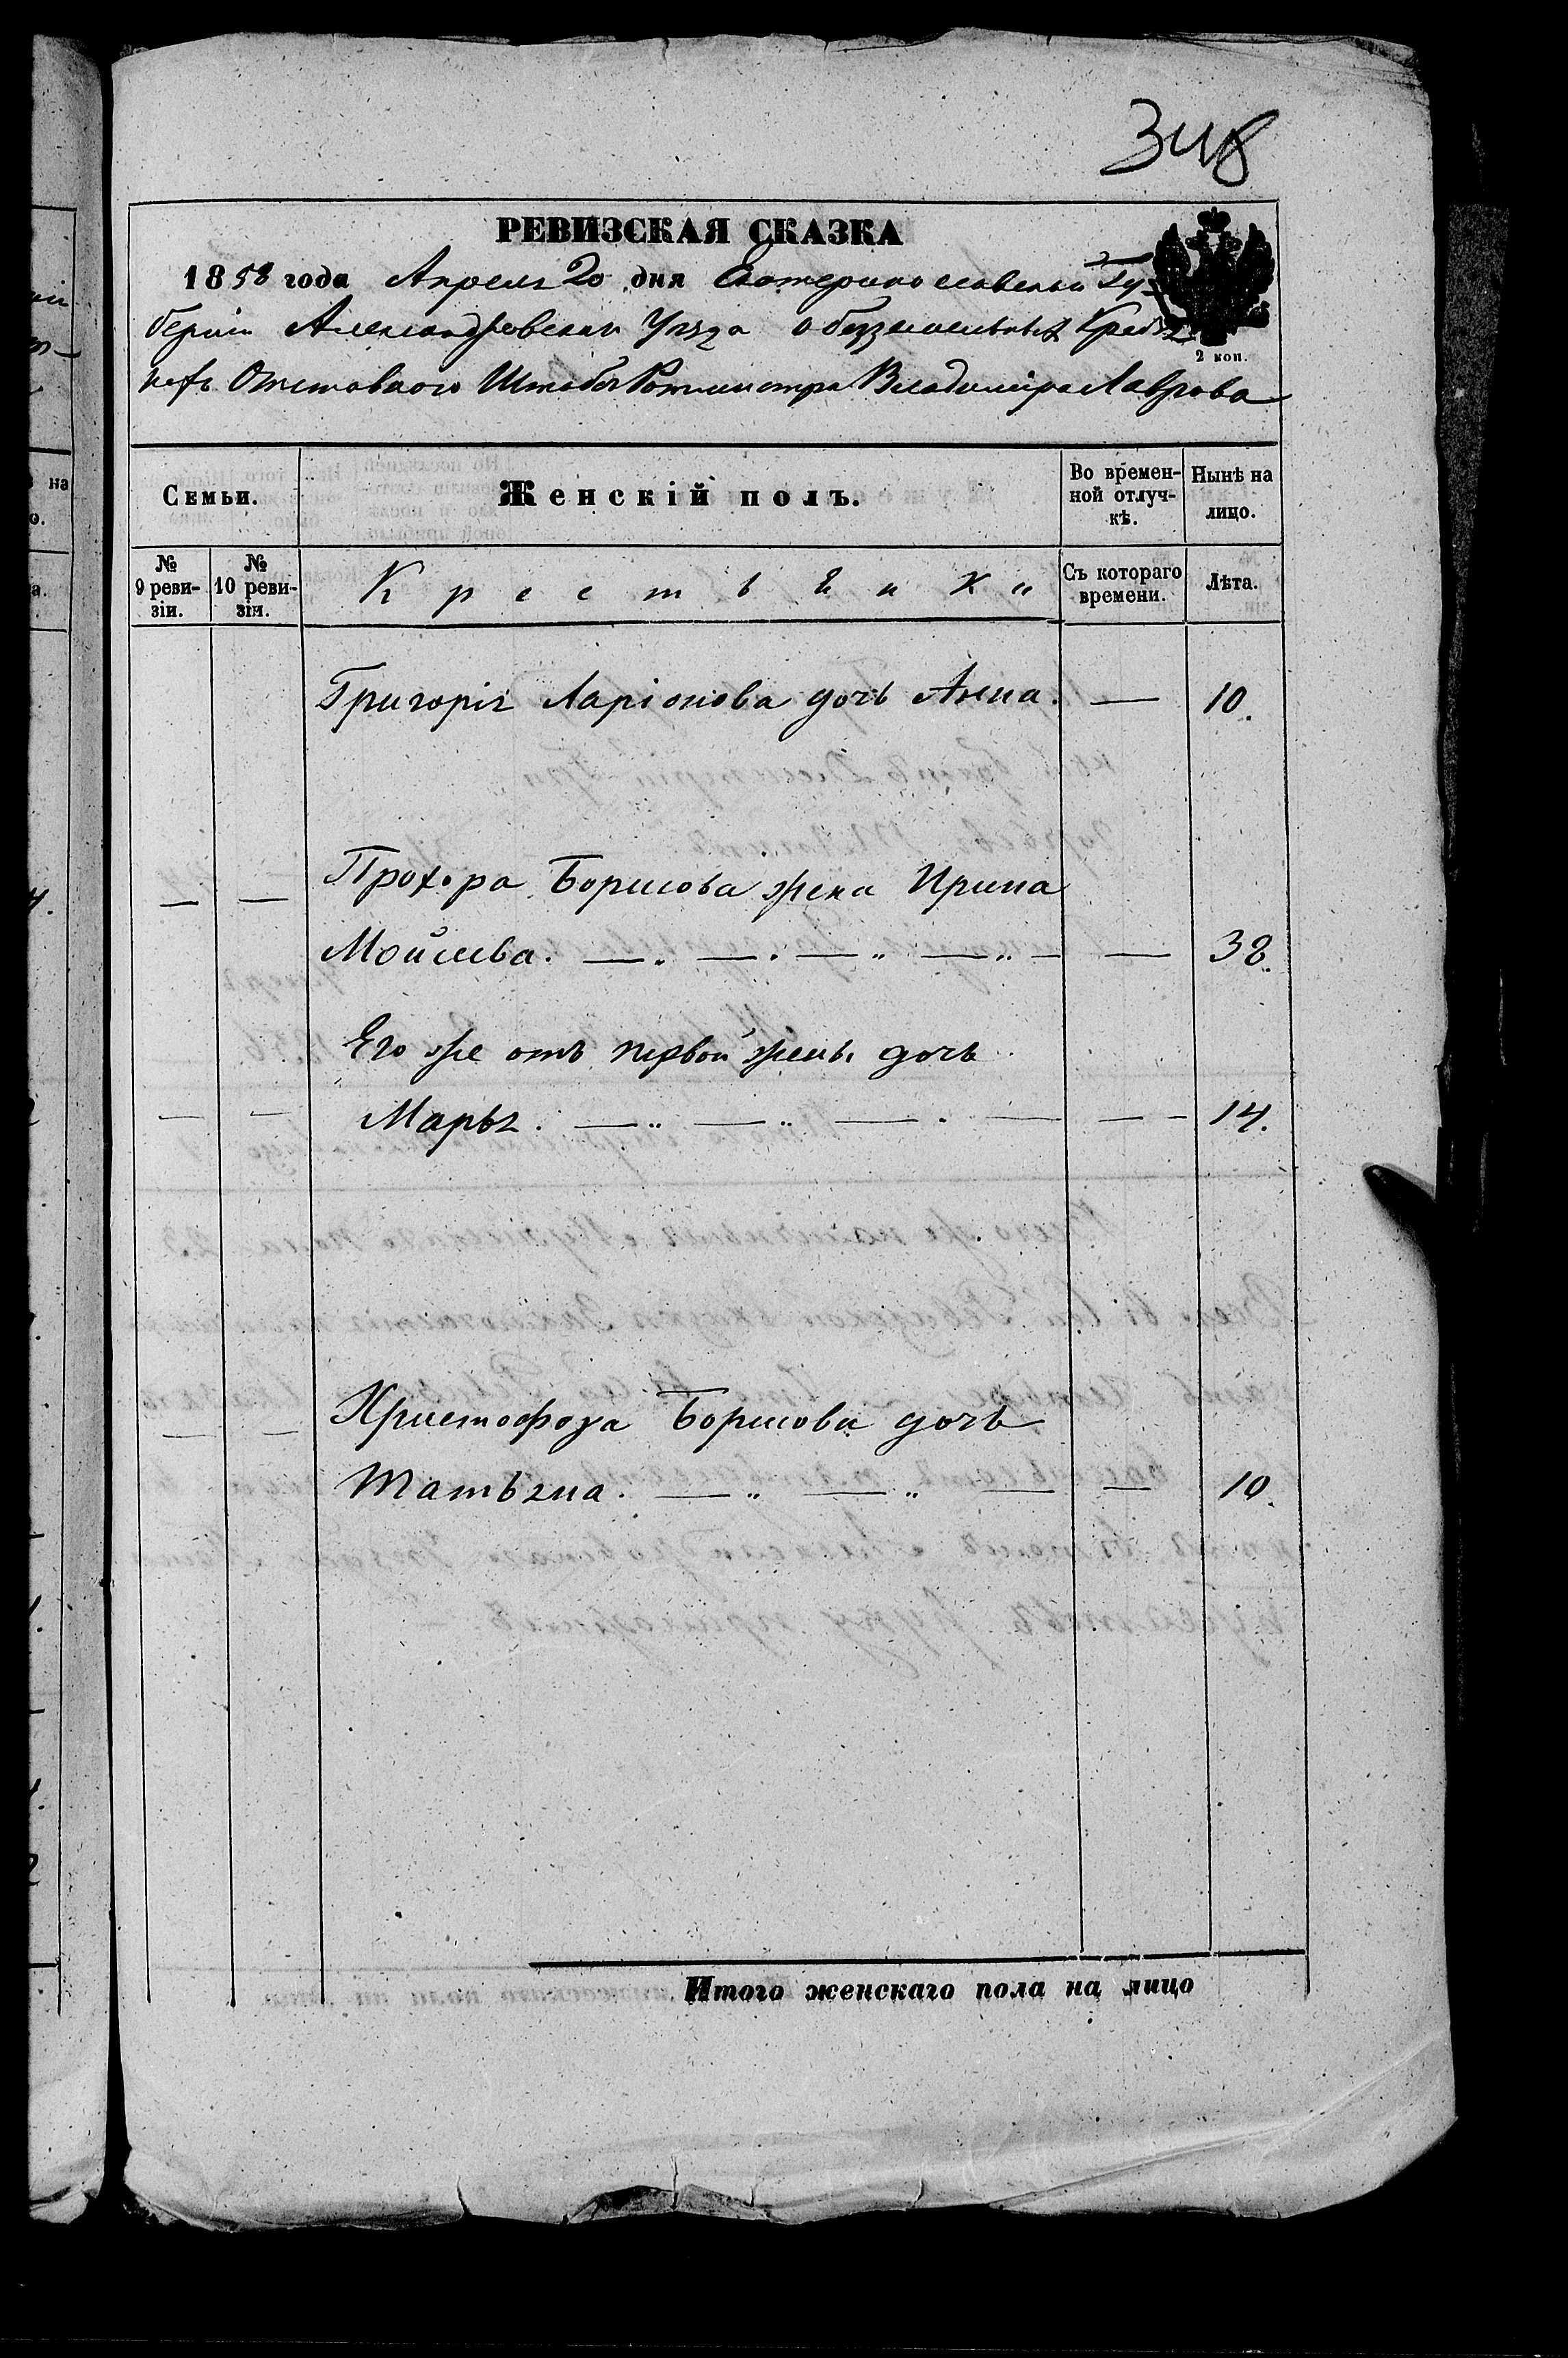 348
РЕВИЗСКАЯ СКАЗКА
1858 года Апреля 20 дня Екатеринославской Гу-
берніи Александровскаго Уезда о безземельныхъ Крестья
нахъ Отставнаго Штабсъ Ротмистра Владиміра Лаврова
2 коп.
Семьи.
Женскій полъ.
Во времен-
ной отлуч-
кѣ.
Нынѣ на
лицо.
№
9 реви-
зіи.
№
10 реви-
зіи.
Крестьянки
Съ котораго
времени.
Лѣта.
Григорія Ларіонова дочь Анна. — 10.
— — Прохора Борисова жена Ирина
Мойсеева. — — 38.
Его же отъ первой жены дочь
— — Марья. — — 14.
— — Христофора Борисова дочь
Татьяна. — — 10.
Итого женскаго пола на лицо